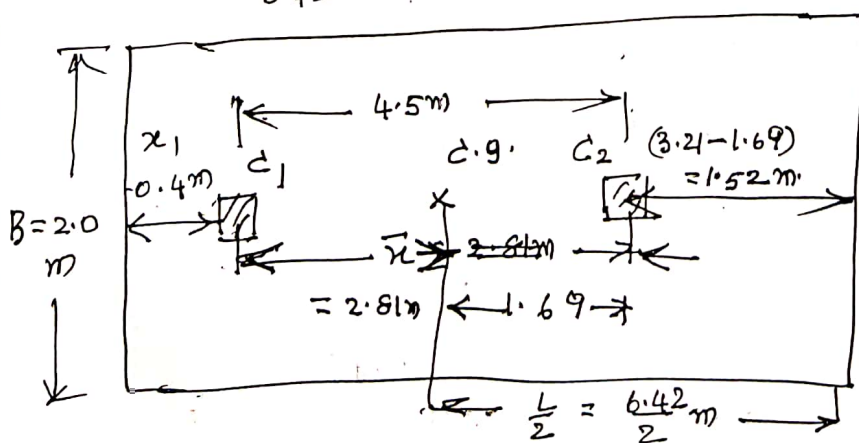 4.5m
x1
C1
c.g.
C2
(3.21-1.69)
= 1.52m.
0.4m
B = 2.0
m
x̄
2.81m
= 2.81m
1.69
L/2 = 6.42/2 m